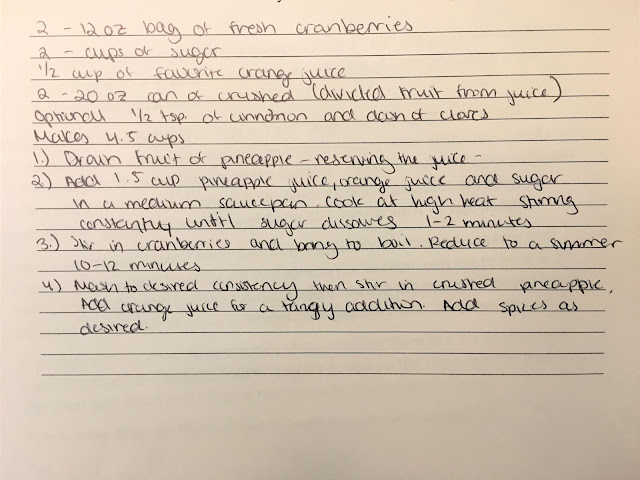 2 - 12 oz bag of fresh cranberries
2 - cups of sugar
1/2 cup of favorite orange juice
2 - 20 oz can of crushed (divided fruit from juice)
Optional 1/2 tsp of cinnamon and dash of cloves
Makes 4.5 cups
1.) Drain fruit of pineapple - reserving the juice -
2) Add 1.5 cup pineapple juice, orange juice and sugar
in a medium saucepan. Cook at high heat stirring
constantly until sugar dissolves 1-2 minutes
3.) Stir in cranberries and bring to boil. Reduce to a simmer
10-12 minutes
4) Mash to desired consistency then stir in crushed pineapple.
Add orange juice for a tangy addition. Add spices as
desired.